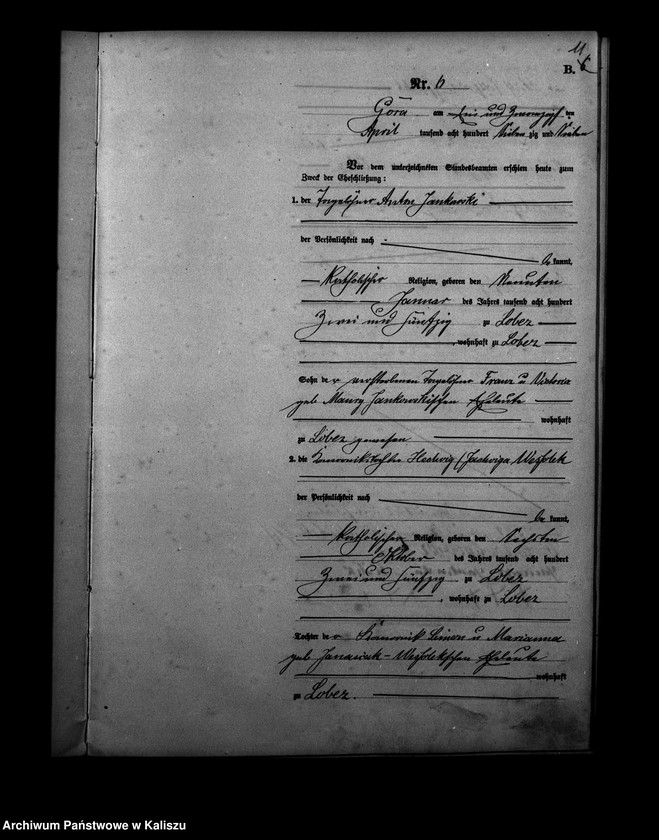 11
B. 6
Nr. 6
Góra am Ein und Zwanzigsten
April tausend acht hundert Sieben zig und Sieben
Vor dem unterzeichneten Standesbeamten erschien heute zum
Zweck der Eheschließung:
1. der Tagelöhner Anton Jankowski
der Persönlichkeit nach
be kannt,
katholischer Religion, geboren den Neunten
Januar des Jahres tausend acht hundert
Zwei und Fünfzig zu Lobez
, wohnhaft zu Lobez
Sohn der verstorbenen Tagelöhner Franz u Victoria
geb Jankowskischen Eheleute
wohnhaft
zu Lobez gewesen
2. die Komorniktochter Hedwig (Jadwiga Wesolek
der Persönlichkeit nach
be kannt,
katholischer Religion, geboren den Sechsten
Oktober des Jahres tausend acht hundert
Zwei und Fünfzig zu Lobez
, wohnhaft zu Lobez
Tochter der Komornik Simon u Marianna
geb Wesolekschen Eheleute
wohnhaft
zu Lobez.
Archiwum Państwowe w Kaliszu